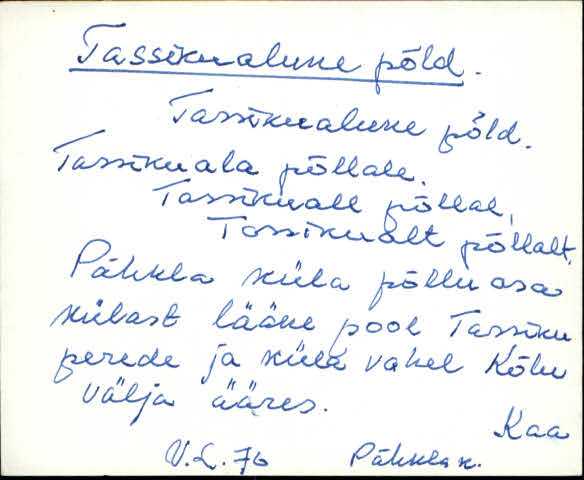 Tassikualune põld.
Tassikualune põld.
Tassikuala põllale.
Tassikuall põllal,
Tassikualt põllalt.
Pähkla küla põllu osa
külast lääne pool Tassiku
perede ja küla vahel Kõlu
välja ääres.
Kaa
V.L. 76 Pähkla k.